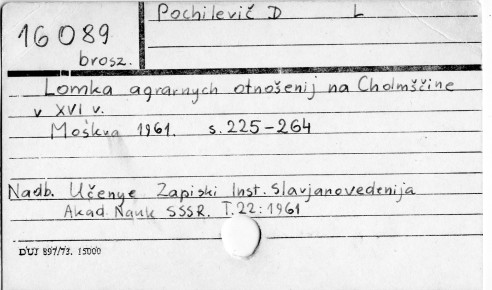 16089
brosz.
Pochilevič D L
Lomka agrarnych otnošenij na Cholmščine
v XVI v.
Moskva 1961. s. 225-264
Nadb. Učenye Zapiski Inst. Slavjanovedenija
Akad. Nauk SSSR. T. 22: 1961
DUJ 897/73. 15000